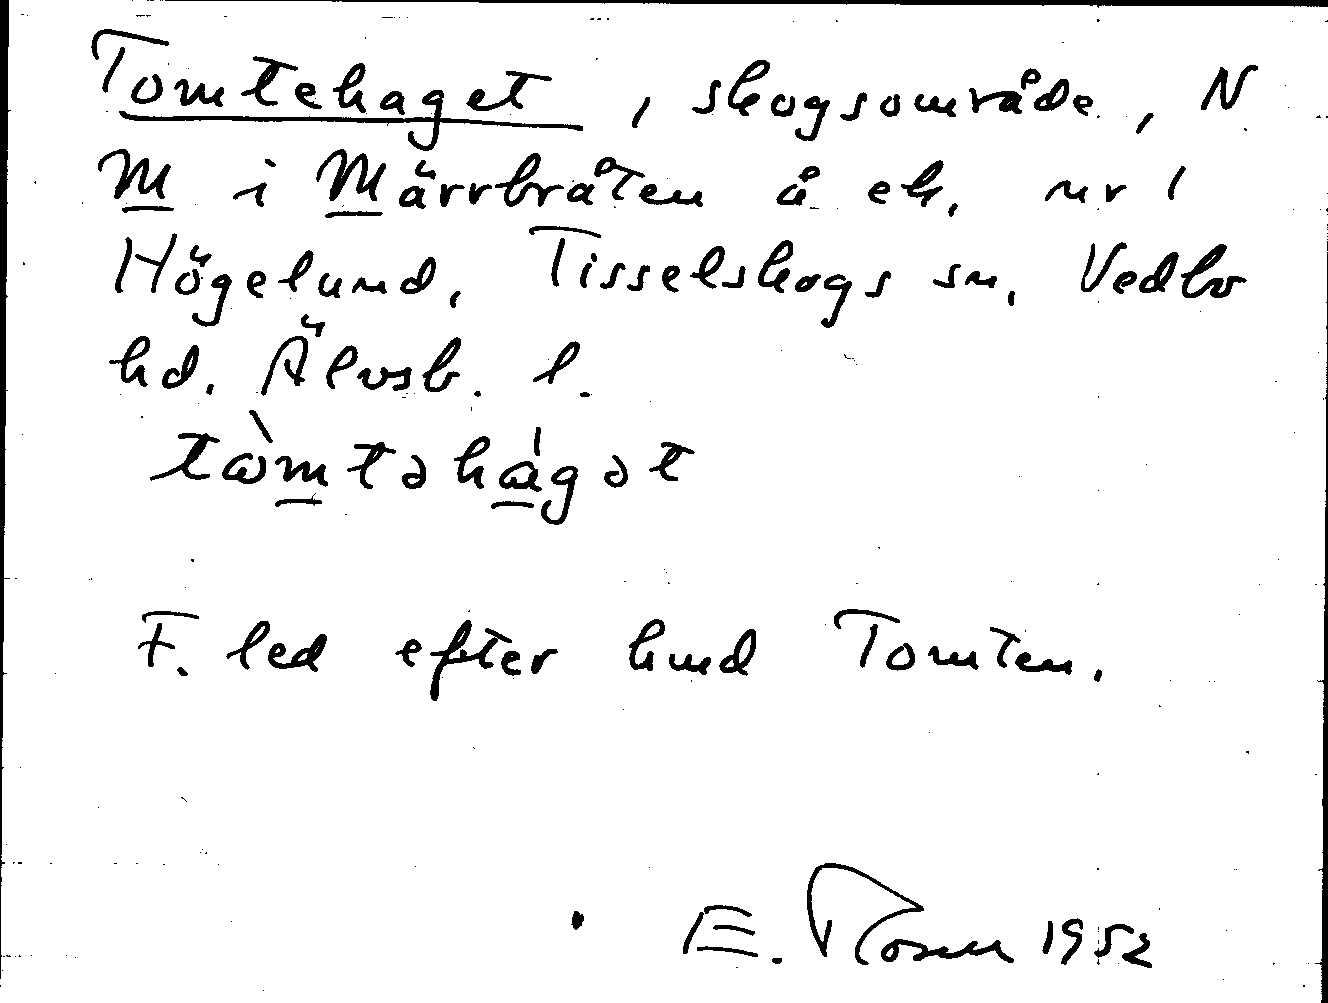 Tomtehaget, skogsområde, N
M i Märrbråten å ek. nr 1
Högelund, Tisselskogs sn, Vedbo
hd. Älvsb. l.
tὼmtəhα̍gət
F. led efter hmd Tomten.
E. Rosen 1952